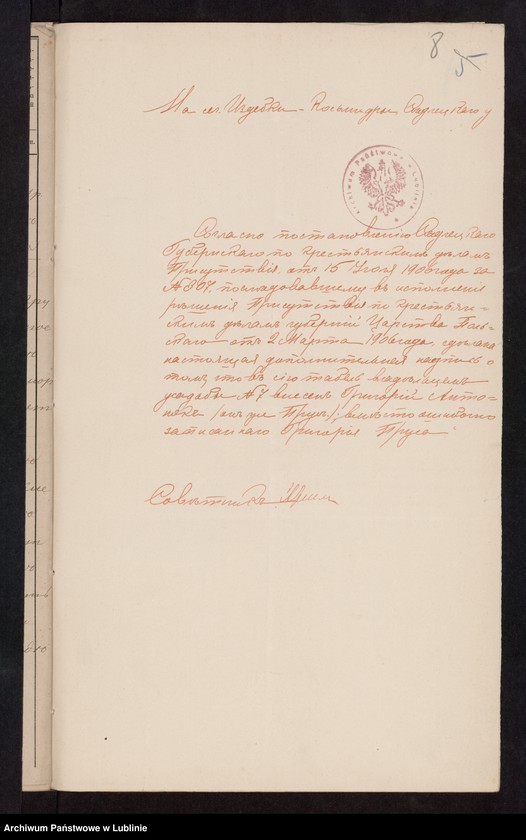 8
5
На сел. Издебки - Косьмидры Седлецкаго у
Archiwum Państwowe w Lublinie
Согласно постановленію Седлецкаго
Губернскаго по крестьянскимъ дѣламъ
Присутствія отъ 15 Іюля 1906 года за
№ 807, послѣдовавшему въ исполненіе
рѣшенія Присутствія по крестьян-
скимъ дѣламъ губерній Царства Поль-
скаго отъ 2 Марта 1906 года, сдѣлана
настоящая дополнительная надпись о
томъ, что въ сію табель владѣльцемъ
усадьбы № 7 внесенъ Григорій Анто-
нюкъ (онъ же Прусъ), вмѣсто ошибочно
записаннаго Григорія Пруса
Совѣтникъ
Archiwum Państwowe w Lublinie